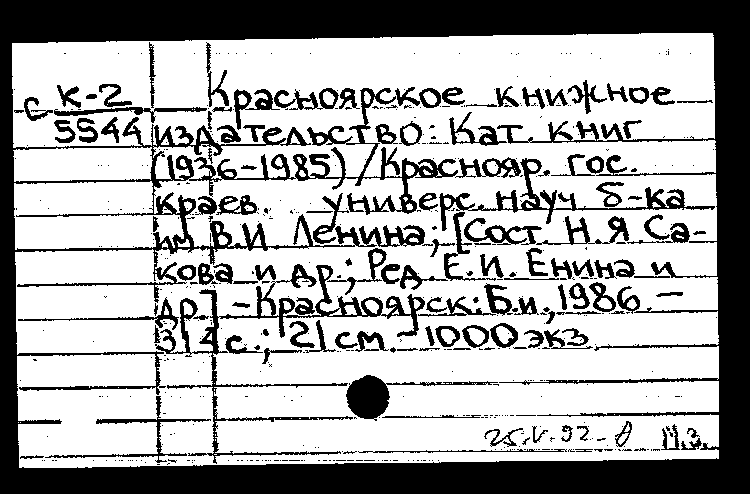 С К-2 Красноярское книжное
5544 издательство: Кат. книг
(1936-1985) / Краснояр. гос.
краев. универс. науч б-ка
им В.И Ленина; [Сост. Н.Я. Са-
кова и др.; Ред. Е.И. Енина и
др.] - Красноярск: Б.и., 1986. -
314 с.; 21 см. - 1000 экз.
25.V.92 - П.3.